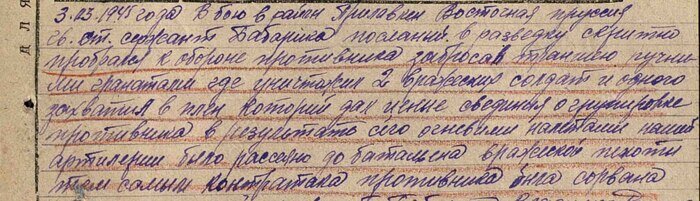 для
3.03.1945 года В бою в район Восточная пруссия
гв. ст. сержант Бабарика послании в разведку скрытно
пробрался к обороне противника забросав траншею ручны
ми гранатами где уничтожил 2 вражеских солдат и одного
захватил в плен который дал ценные сведения о групировке
противника в результате сего огневыми налетами нашей
артилерии было рассеяно до батальена вражеской пехоты
тем самым контратака противника была сорвана